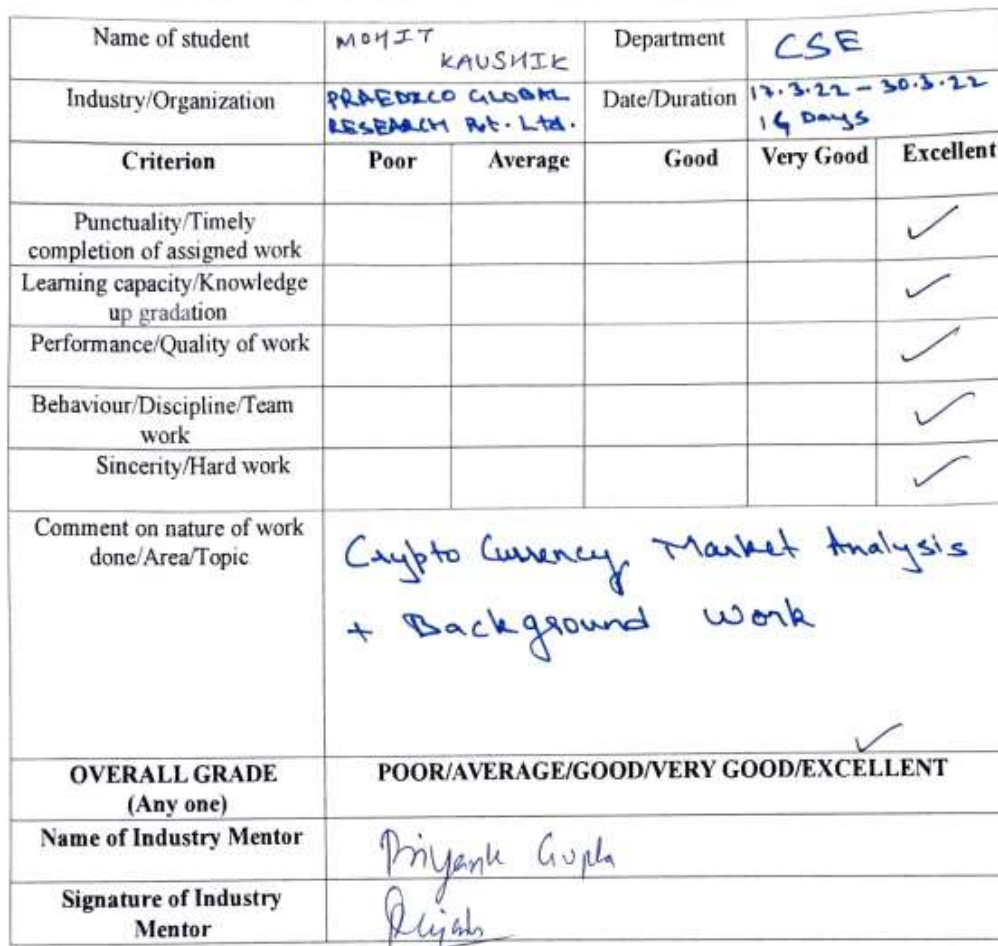 Name of student MOHIT Department CSE
KAUSHIK
Industry/Organization PRAEDICO GLOBAL Date/Duration 17.3.22 - 30.3.22
RESEARCH Pvt. Ltd. 14 Days
Criterion Poor Average Good Very Good Excellent
Punctuality/Timely ✓
completion of assigned work
Learning capacity/Knowledge ✓
up gradation
Performance/Quality of work ✓
Behaviour/Discipline/Team ✓
work
Sincerity/Hard work ✓
Comment on nature of work Crypto Currency Market Analysis
done/Area/Topic
+ Background Work
✓
OVERALL GRADE POOR/AVERAGE/GOOD/VERY GOOD/EXCELLENT
(Any one)
Name of Industry Mentor Priyank Gupta
Signature of Industry
Mentor